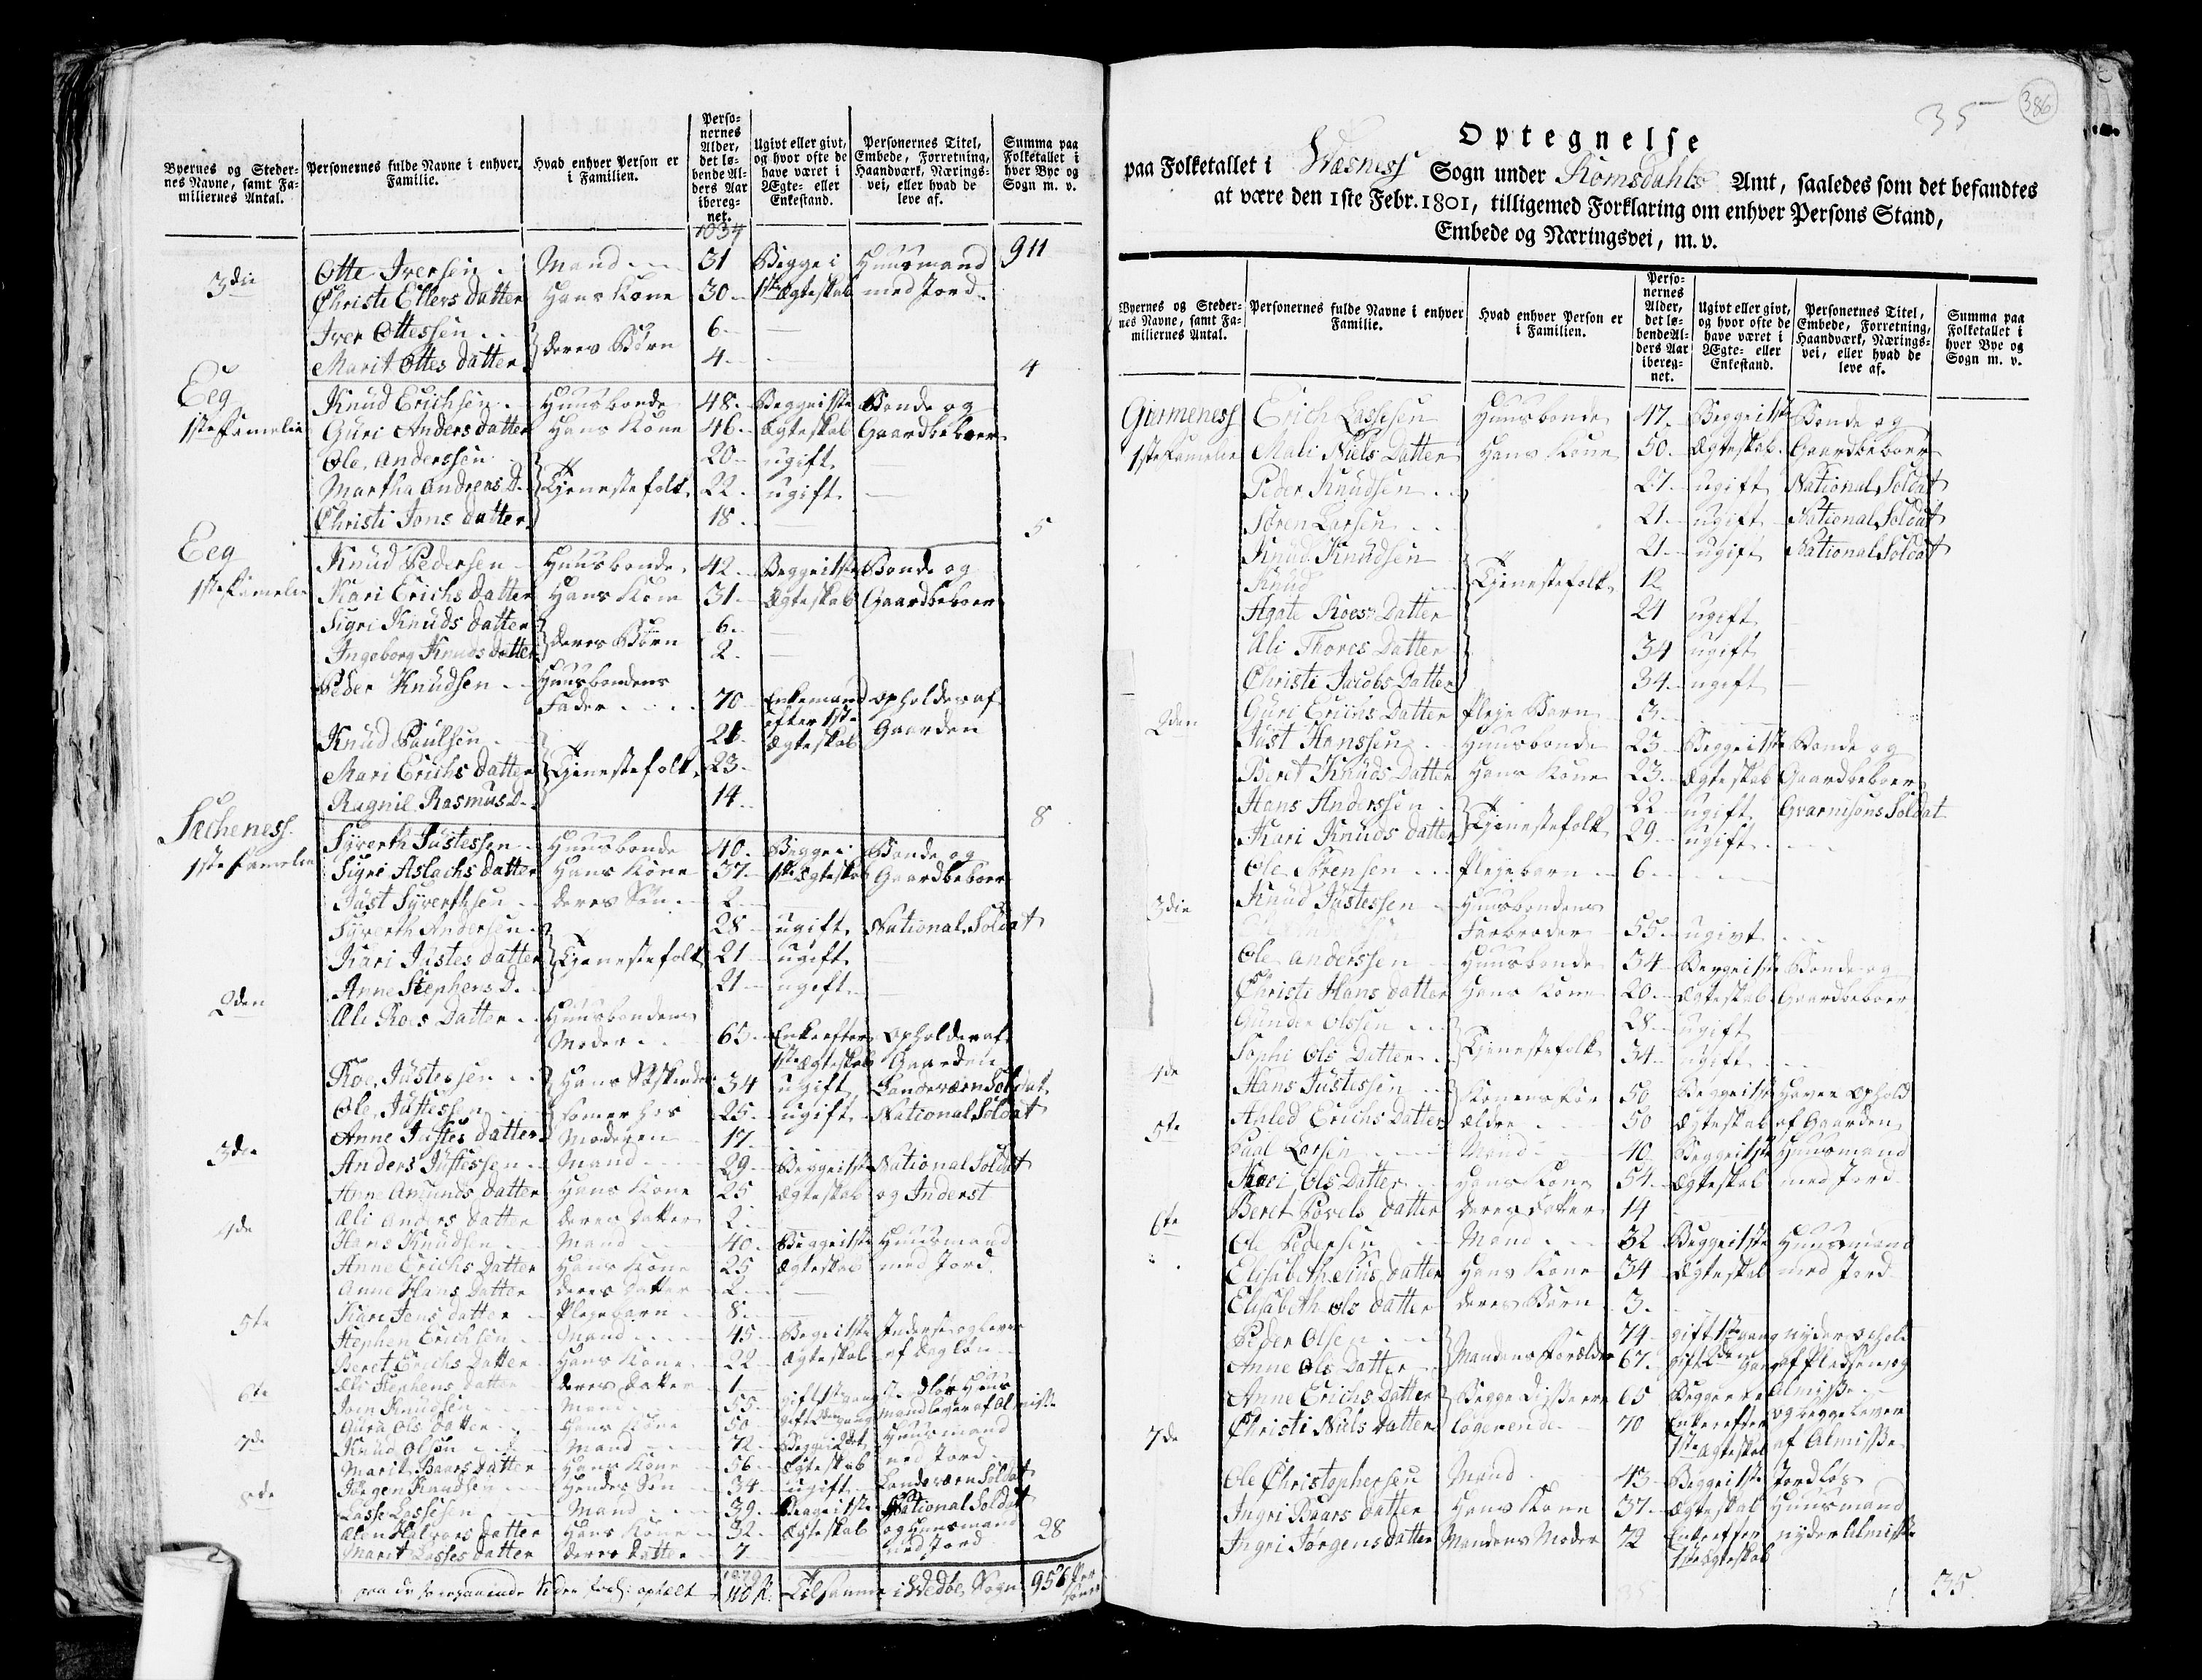 Byernes og Steder-
nes Navne, samt Fa-
miliernes Antal.
Personernes fulde Navne i enhver
Familie.
Hvad enhver Person er
i Familien.
Perso-
nernes
Alder,
det lø-
bende Al-
ders Aar
ibereg-
net.
Ugivt eller givt,
og hvor ofte de
have været i
Ægte- eller
Enkestand.
Personernes Titel,
Embede, Forretning,
Haandværk, Nærings-
vei, eller hvad de
leve af.
Summa paa
Folketallet i
hver Bye og
Sogn m. v.
1034
911
3die Otte Iversen Mand 31 Begge i Huusmand
Christi Ellers datter Hans Kone 30 1ste Ægteskab med Jord
Iver Ottessen 6
deres Børn
Marit Ottes datter 4
4
Eeg Knud Erichsen Huusbonde 48 Begge i 1ste Bonde og
1ste Familie Guri Anders datter Hans Kone 46 Ægteskab Gaardbeboer
Ole Anderssen 20 ugift
Martha Andreas D. Tjenestefolk 22 ugift
Christi Jons datter 18
5
Eeg Knud Pedersen Huusbonde 42 Begge i 1ste Bonde og
1ste Familie Kari Erichs datter Hans Kone 31 Ægteskab Gaardbeboer
Sigri Knuds datter 6
deres Børn
Ingeborg Knuds datter 2
Peder Knudsen Huusbondens
Fader 70 Enkemand opholdes af
efter 1ste
Knud Paulsen 21 Ægteskab Gaarden
Mari Erichs datter Tjenestefolk 23
Ragnil Rasmus D. 14
8
Secheness Syverth Justessen Huusbonde 40 Begge i Bonde og
1ste Familie Sigri Aslachs datter Hans Kone 37 1ste Ægteskab Gaardbeboer
Just Syverthsen deres Søn 2
Syverth Andersen 28 ugift National Soldat
Kari Justes datter Tjenestefolk 21 ugift
Anne Stephens D. 21 ugift
2den Ali Roes Datter Huusbondens
Moder 65 Enke efter opholdes af
1ste Ægteskab Gaarden
Roe Justessen Hans Søskende 34 ugift Landeværn Soldat
Ole Justessen som er hos 25 ugift National Soldat
Anne Justes datter Moderen 17
3die Anders Justessen Mand 29 Begge i 1ste National Soldat
Anne Amunds datter Hans Kone 25 Ægteskab og Inderst
Ali Anders datter deres datter 2
4de Hans Knudsen Mand 40 Begge i 1ste Huusmand
Anne Erichs datter Hans Kone 25 Ægteskab med Jord
Anne Hans datter deres datter 2
Kari Jens datter Plejebarn 8
5te Stephen Erichsen Mand 45 Begge i 1ste Inderste og lever
Beret Erichs datter Hans Kone 22 Ægteskab af dagløn
Ali Stephens datter deres datter 1
6te Iven Knudsen Mand 55 gift 1ste gang Jordløs Huus
Guru Ols datter Hans Kone 50 gift 2den gang mand lever af Almisse
7de Knud Olsen Mand 72 Begge i 2det Huusmand
Marit Baars datter Hans Kone 56 Ægteskab med Jord
Jørgen Knudsen Hendes Søn 34 ugift Landeværn Soldat
8de Lasse Lassesen Mand 39 Begge i 1ste National Soldat
Halvors datter Hans Kone 32 Ægteskab og Huusmand
Marit Lasses datter deres datter 7 med Jord
28
1079
Tilsammen i Wedøe Sogn 956
386
35
Optegnelse
paa Folketallet i Wæsness Sogn under Romsdahls Amt, saaledes som det befandtes
at være den 1ste Febr. 1801, tilligemed Forklaring om enhver Persons Stand,
Embede og Næringsvei, m. v.
Byernes og Steder-
nes Navne, samt Fa-
miliernes Antal.
Personernes fulde Navne i enhver
Familie.
Hvad enhver Person er
i Familien.
Perso-
nernes
Alder,
det lø-
bende Al-
ders Aar
ibereg-
net.
Ugivt eller givt,
og hvor ofte de
have været i
Ægte- eller
Enkestand.
Personernes Titel,
Embede, Forretning,
Haandværk, Nærings-
vei, eller hvad de
leve af.
Summa paa
Folketallet i
hver Bye og
Sogn m. v.
Giermeness Erich Lassesen Huusbonde 47 Begge i 1ste Bonde og
1ste Familie Mali Niels Datter Hans Kone 50 Ægteskab Gaardbeboer
Peder Knudsen 27 ugift National Soldat
Søren Larsen 21 ugift National Soldat
Knud Knudsen 21 ugift National Soldat
Knud Tjenestefolk 12
Agate Roes Datter 24 ugift
Ali Thores Datter 34 ugift
Christi Jacobs Datter 34 ugift
Guri Erichs Datter Pleje Barn 3
2den Just Hanssen Huusbonde 23 Begge i 1ste Bonde og
Beret Knuds Datter Hans Kone 23 Ægteskab Gaardbeboer
Hans Anderssen 22 ugift Gvarnisons Soldat
Tjenestefolk
Kari Knuds datter 29 ugift
Ole Sørensen Plejebarn 6
3die Knud Justessen Huusbondens
Farbroder 55 ugivt
Ole Anderssen Huusbonde 34 Begge i 1ste Bonde og
Christi Hans datter Hans Kone 20 Ægteskab Gaardbeboer
Gunder Olssen 28 ugift
Tjenestefolk
Sophi Ols Datter 34 ugift
4de Hans Justessen Konens For 50 Begge i 1ste Haver Ophold
Anled Erichs Datter ældre 50 Ægteskab af Gaarden
5te Paal Larsen Mand 40 Begge i 1ste Huusmand
Kari Ols Datter Hans Kone 54 Ægteskab med Jord
Beret Povels datter deres datter 14
6te Ole Pedersen Mand 32 Begge i 1ste Huusmand
Elisabeth datter Hans Kone 34 Ægteskab med Jord
Elisabeth Ols datter deres Barn 3
Peder Olsen 74 gift 1ste gang nyder ophold
Mandens Forældre
Anne Ols Datter 67 gift 2den gang af Pladsen og
Anne Erichs Datter Begge Disse ere 65 Almisse
Christi Niels Datter logerende 70 Enke efter og begge lever
1ste Ægteskab af Almisse
7de Ole Christophersen Mand 43 Begge i 1ste Jordløs
Ingri Baars datter Hans Kone 37 Ægteskab Huusmand
Ingri Jørgens datter Mandens Moder 72 Enke efter nyder Almisse
1ste Ægteskab
35